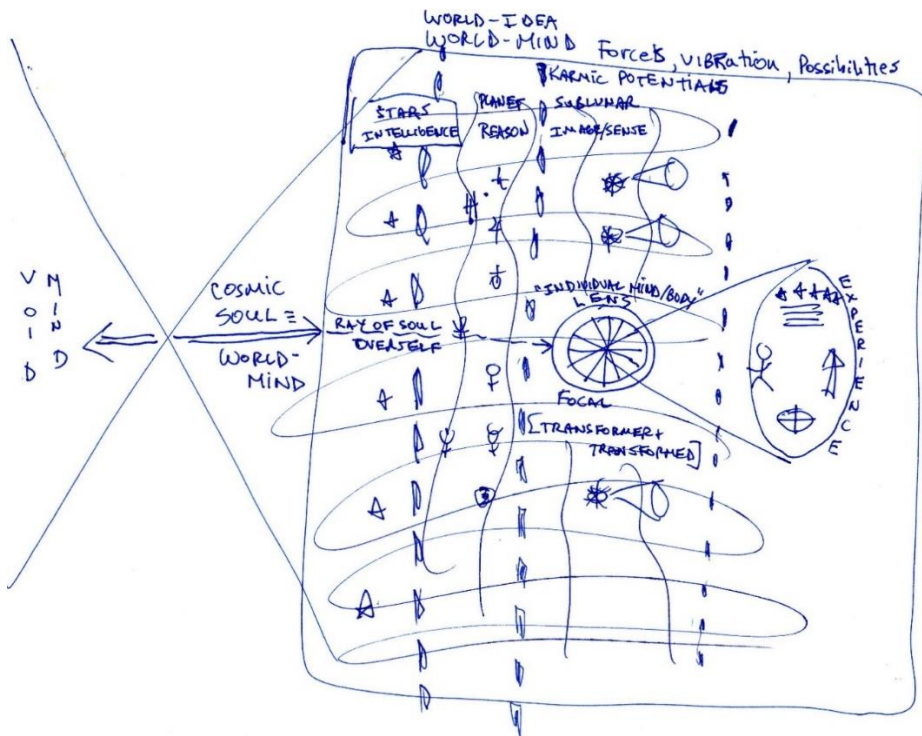 WORLD-IDEA
WORLD-MIND Forces, VIBRATION, Possibilities
KARMIC POTENTIALS
STARS
INTELLIGENCE
PLANET
REASON
SUBLUNAR
IMAGE/SENSE
VOID
MIND
COSMIC
SOUL
WORLD-
MIND
RAY OF SOUL
OVERSELF
"INDIVIDUAL MIND/BODY"
LENS
FOCAL
[TRANSFORMER +
TRANSFORMED]
EXPERIENCE